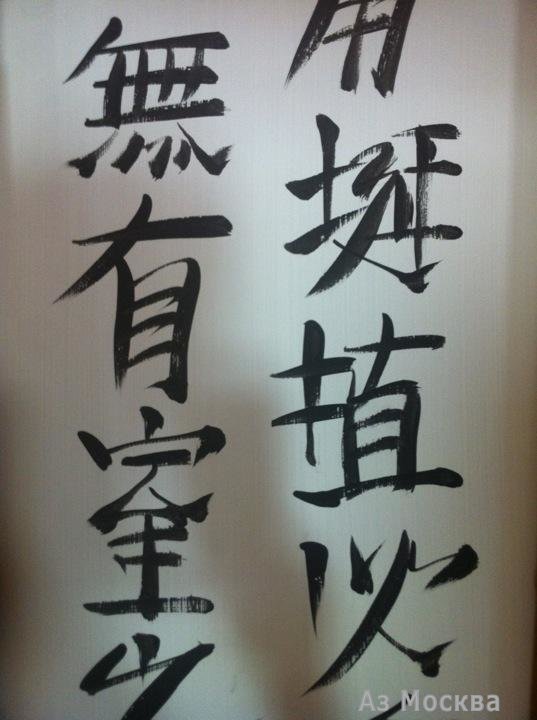 用埏埴以
無有室
Аз Москва